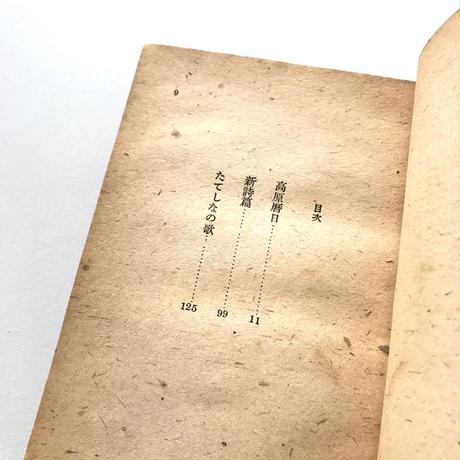 9
目次
高原暦日……………11
新詩篇……………99
たてしなの歌……………125